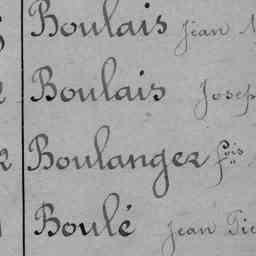 Boulais Jean
Boulais Josep
Boulanger fois
Boulé Jean Pie